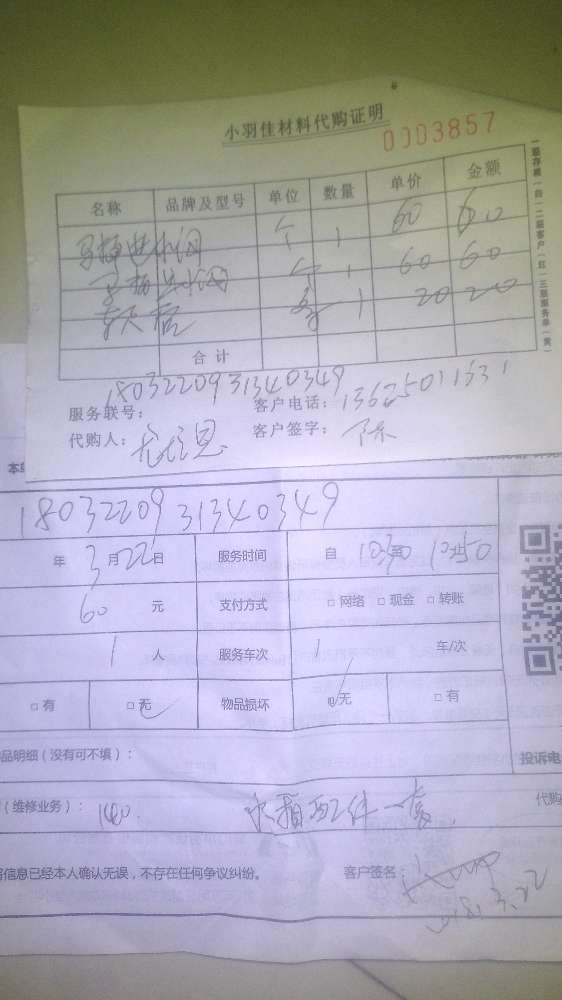 小羽佳材料代购证明
0003857
名称 品牌及型号 单位 数量 单价 金额
马桶进水阀 个 1 60 60
个 1 60 60
1 20 20
合计
18032209 31340349
服务联号: 客户电话: 13625011631
代购人: 客户签字: 陈
一联存根(白)二联客户(红)三联服务单(黄)
18032209 31340349
年 3月22日 服务时间 自 10:30 10:50
60 元 支付方式 □网络 □现金 □转账
1 人 服务车次 1 车/次
□有 □无 物品损坏 □无 □有
品明细(没有可不填):
投诉电
(维修业务): 140. 水箱配件一套. 代购
信息已经本人确认无误,不存在任何争议纠纷。 客户签名:
2018.3.22